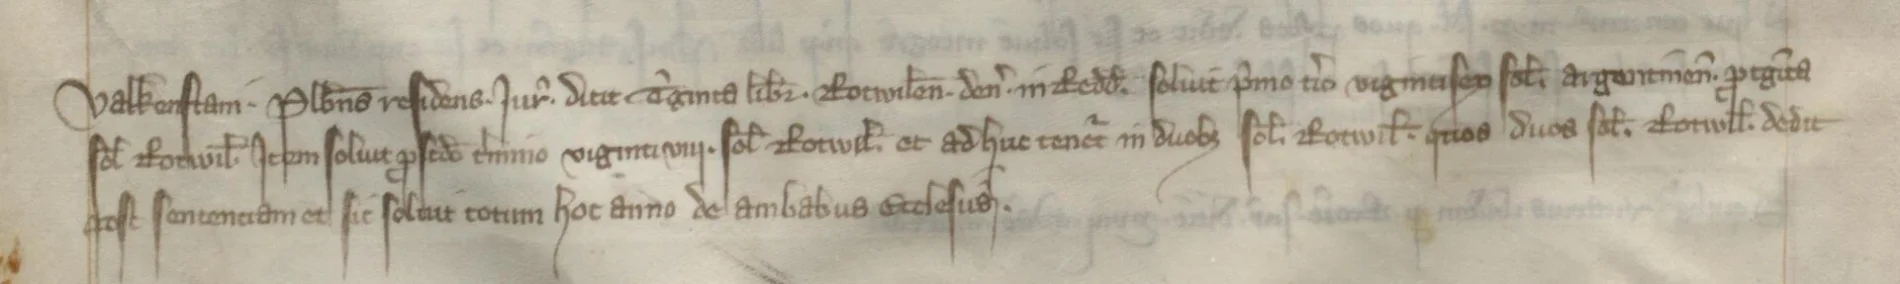 Valkenstain. Plebns residens. Jur. dicit Tginta libr. Rotwilen. den. in Redd. soluit pmo tio vigintisex sol. argentinen. p tginta
sol Rotwil. Item soluit p scdo tmino viginti viij. sol Rotwil. et adhuc tenet in duobz sol. Rotwil. quos duos sol. Rotwill. dedit
post sentenciam et sic soluit totum hoc anno de ambabus Ecclesijs.